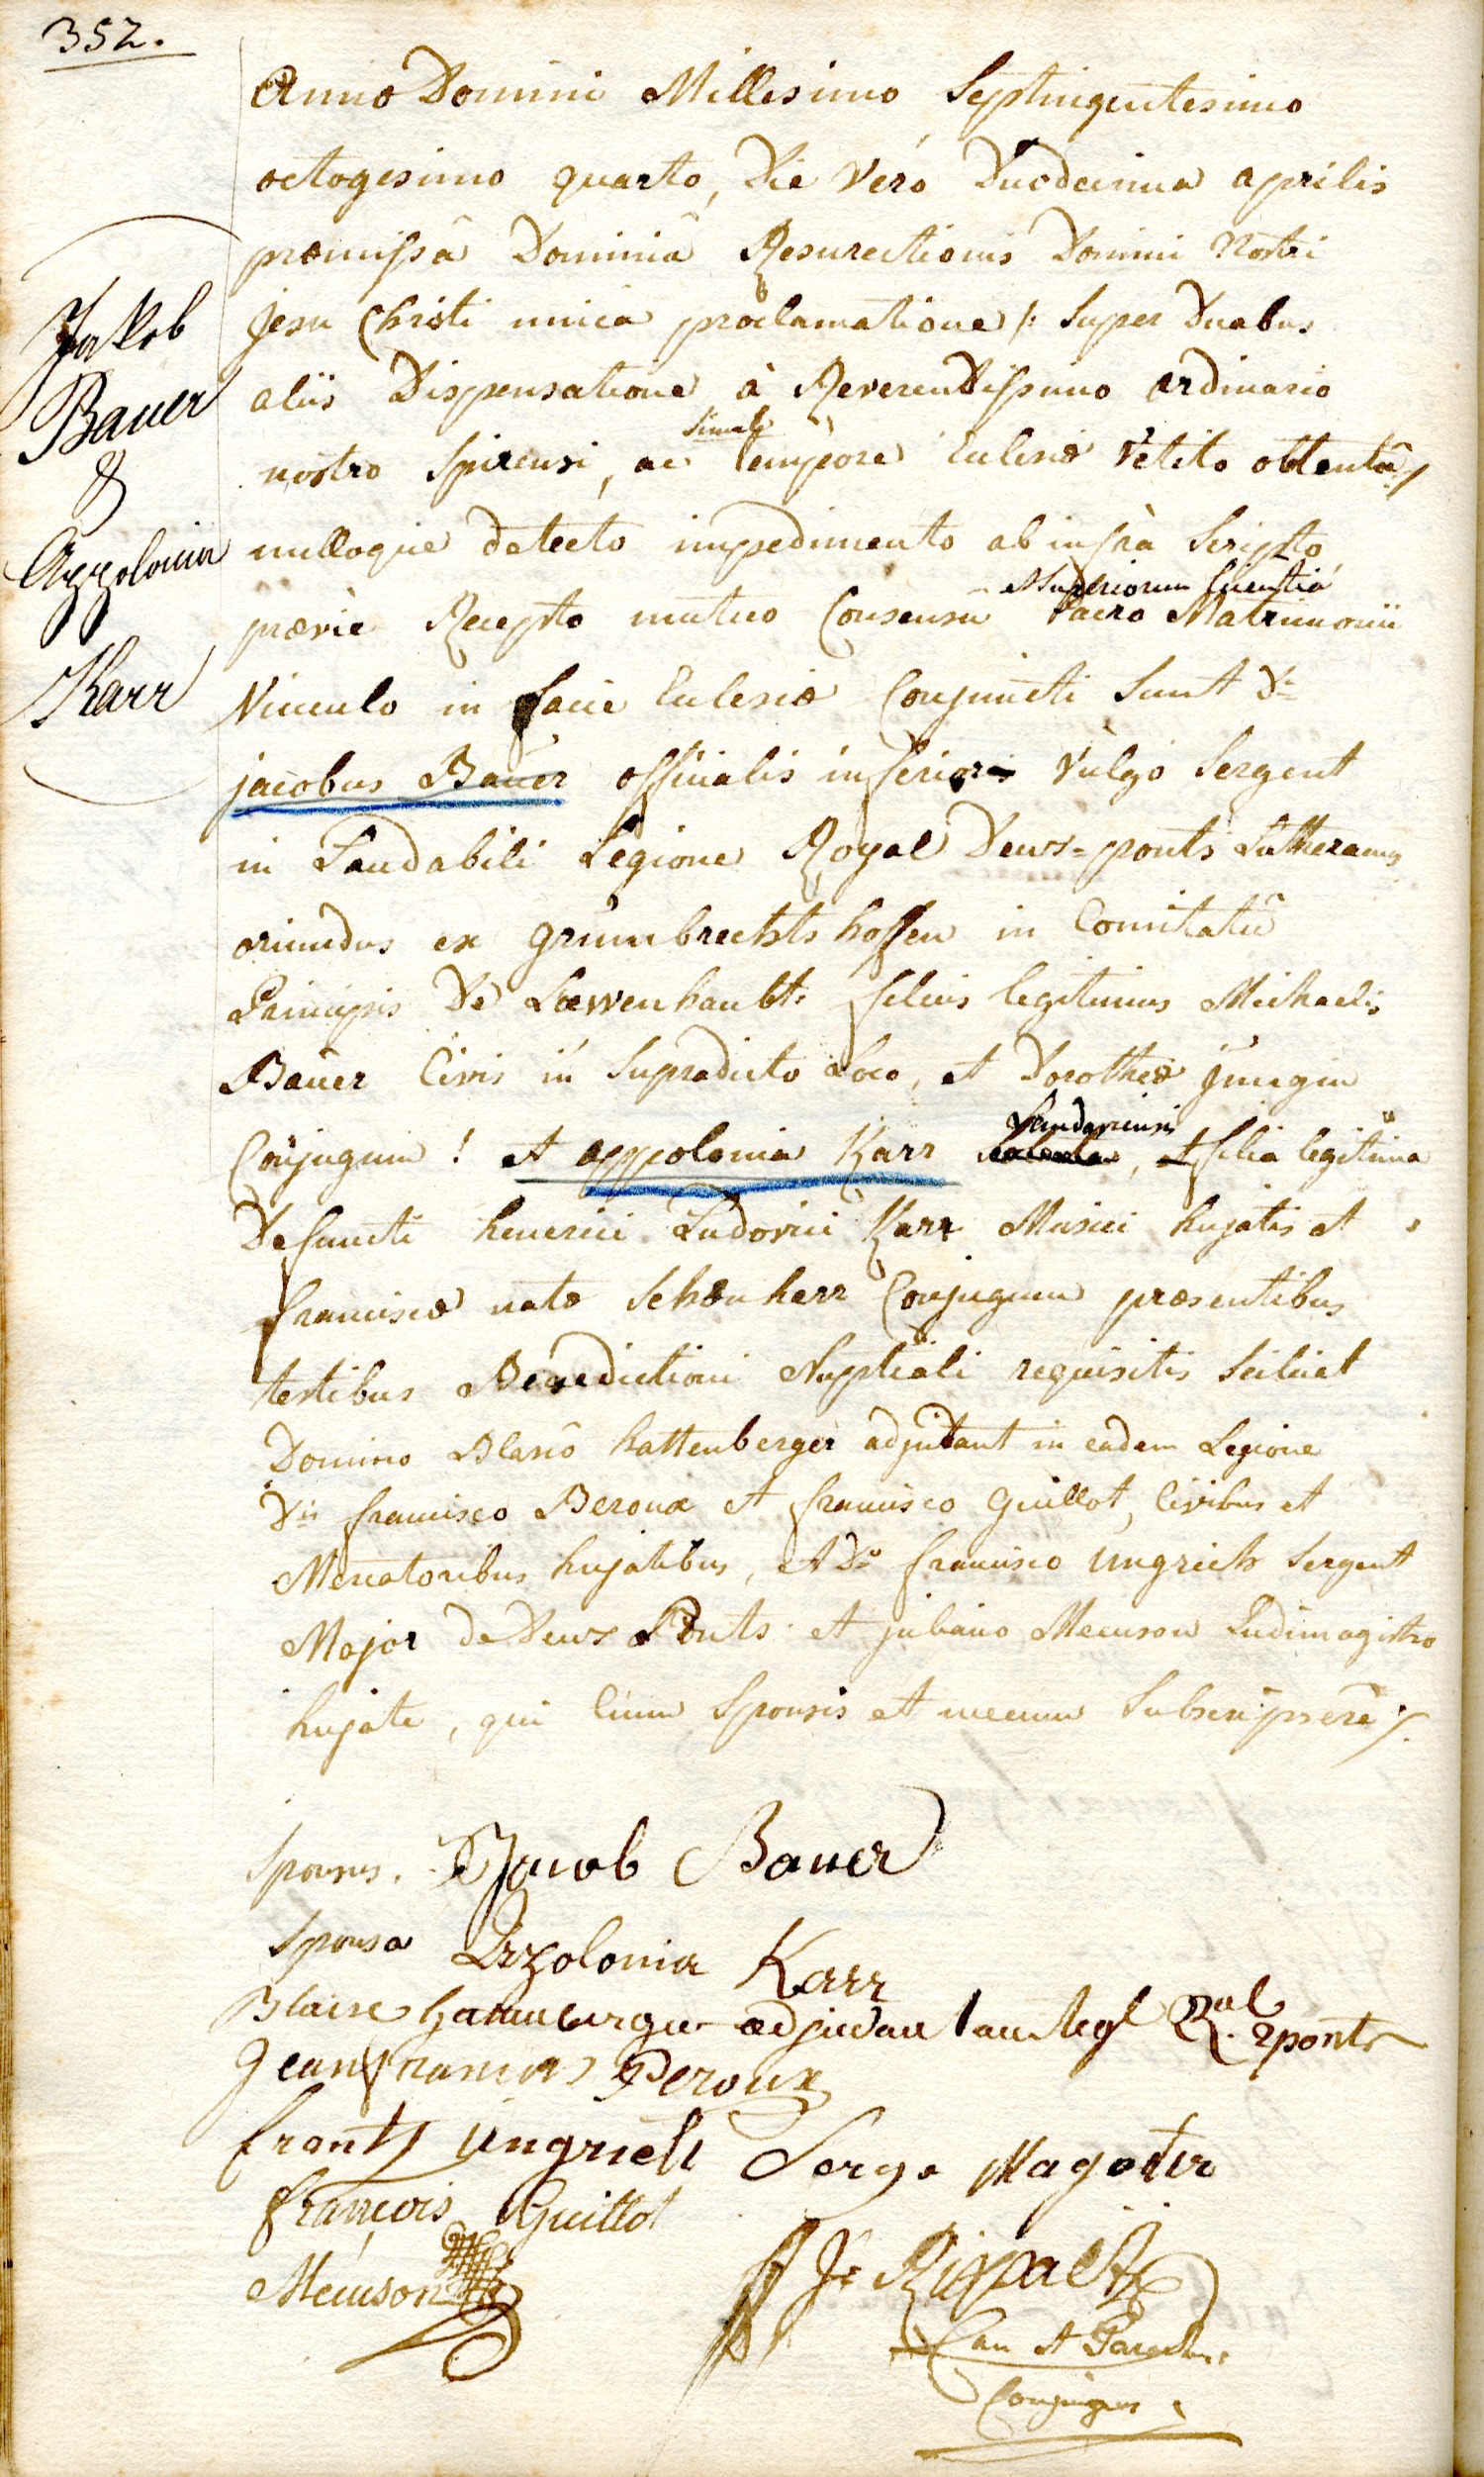 352.
Jakob
Bauer
&
Appolonia
Karr
Anno Domini Millesimo Septingentesimo
octogesimo quarto, Die Verò Duodecima aprilis
præmissâ Dominiâ Resurectionis Domini Nostri
Jesu Christi unicâ proclamatione /: Super Duabus
aliis Dispensatione à Reverendissimo ordinario
simul
nostro Spirensi, ac tempore Eclesiæ Vetito obtentâ :/
nulloque detecto impedimento ab infrà Scripto
Superiorum licentiâ
prævie Recepto mutuo Consensu Sacro Matrimonii
Vinculo in facie Eclesiæ Conjuncti Sunt Ds
jacobus Bauer officialis inferior Vulgo Sergent
in Laudabili Legione Royal Deux=ponts Lutheranus
oriundus ex grumbrechtshoffen in Comitatû
Principis De Lœwenhaubt: filius legitimus Michaelis
Bauer Civis in Supradicto Loco, et Dorotheæ
Conjugum ! et appolonia Karr
Landaviensis
, filia legitima
Defuncti henerici Ludovici Karr Musici hujatis et
francisæ natæ Schœnherr Conjugum præsentibus
testibus Benedictioni Nuptiali requisitis Scilicet
Domino Blasio hattenberger adjutant in eadem Legione
Dis francisco Beroux et francisco Guillot, Civibus et
Mercatoribus hujatibus, et Do francisco Ungrich Sergent
Major de Deux Ponts et Mecuson Ludimagistro
hujate, qui Cum Sponsis et mecum Subscripsêre ./.
Sponsus. Jacob Bauer
Sponsa Appolonia Karr
Blaise adjudan au Regt Ral 2ponts
Jean francois Peroux
frantz Ungrich Serga Magoder
françois Guillot
Mecuson
Can et Paroch.